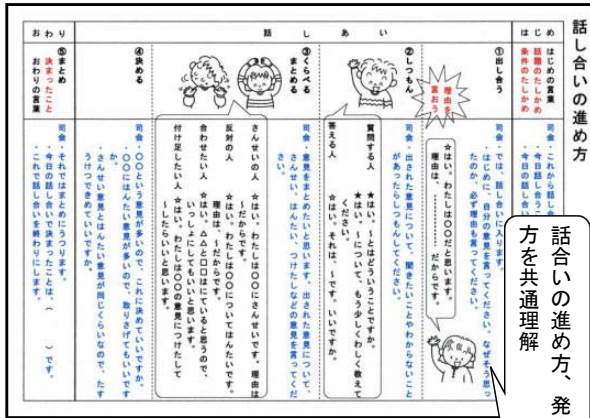 話し合いの進め方
はじめ
はじめの言葉
話題のたしかめ
条件のたしかめ
司会・これから話し合
・今日話し合うこ
・今日の話し合
話しあい
①出し合う
理由を
言おう
司会・では、話し合いに入ります。
・はじめに、自分の意見を言ってください。なぜそう思っ
たのか、必ず理由も言ってください。
☆はい。わたしは〇〇だと思います。
理由は、
だからです。
②しつもん
司会・出された意見について、聞きたいことやわからないこと
があったらしつもんしてください。
質問する人
★はい。～とはどういうことですか。
★はい。～について、もう少しくわしく教えて
ください。
答える人
☆はい。それは、～です。いいですか。
③くらべる
まとめる
司会・意見をまとめたいと思います。出された意見について、
さんせい、はんたい、つけたしなどの意見を言ってくだ
さい。
さんせいの人
☆はい。わたしは〇〇にさんせいです。理由は
～だからです。
反対の人
☆はい。わたしは〇〇についてはんたいです。
理由は、～だからです。
合わせたい人
☆はい。△△と口口はにていると思うので、
いっしょにしてもいいと思います。
付け足したい人
☆はい。わたしは〇〇の意見につけたして
～したらいいと思います。
④決める
司会・〇〇という意見が多いので、これに決めていいですか。
・〇〇にはんたい意見が多いので、取りさげてもいいです
か。
・さんせい意見とはんたい意見が同じくらいなので、たす
うけつできめていいですか。
おわり
⑤まとめ
決まったこと
おわりの言葉
司会・それではまとめにうつります。
・今日の話し合いで決まったことは、（　　　）です。
・これで話し合いを終わりにします。
話合いの進め方、発
方を共通理解